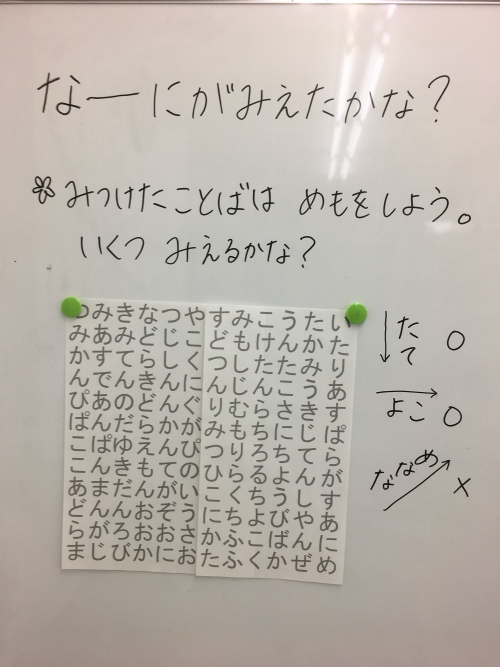 なーにがみえたかな？
みつけたことばは めもをしよう。
いくつ みえるかな？
つみきなつやすみこうたい
みあみどじこどもけんかた
かすてらしくつしたたみり
んでんきんにんじんこうあ
ぴあのどんぐりむらさきす
ぱんだらかがみもちにじぱ
こぱゆえんぴつりろちてら
こんきもてのひらるよんが
あまだんがいこくちうしす
どんんおぞうにちよびやあ
らがろおおさかふこばんに
まじびかにおたふくかぜめ
たて ○
よこ ○
ななめ ×